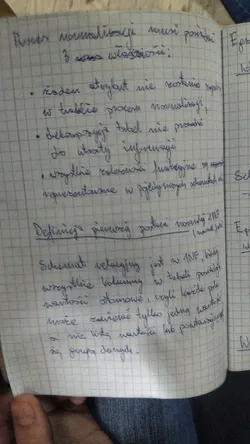 Proces normalizacji musi posiadać
3 własności:
• żaden atrybut nie zostanie
w trakcie procesu normalizacji
• dekompozycja tabel nie prowadzi
do utraty informacji
• wszystkie zależności funkcyjne są
reprezentowane w
Definicja pierwszej postaci normalnej 1NF
Schemat relacyjny jest w 1NF, kiedy
wszystkie kolumny w tabeli posiadają
wartości atomowe, czyli każde pole
może zawierać tylko jedną wartość
a nie
są grupą danych.